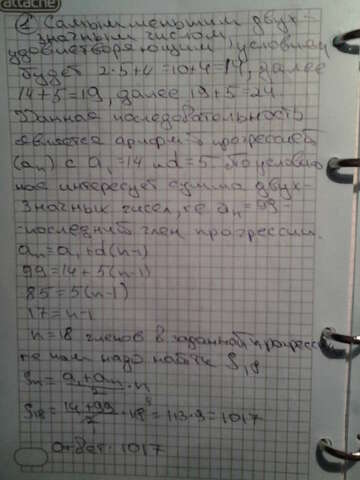 attache
① Самым меньшим двух-
значным числом,
удовлетворяющим условиям
будет 2·5+4=10+4=14, далее
14+5=19, далее 19+5=24
Данная последовательность
является арифм. прогрессией
(an) с a1=14 и d=5. По условию
нас интересует сумма двух-
значных чисел, т.е an=99 -
последний член прогрессии.
an=a1+d(n-1)
99=14+5(n-1)
85=5(n-1)
17=n-1
n=18 членов в заданной прогрессии
те нам надо найти S18
Sn=a1+an/2·n
S18=14+99/2·18=113·9=1017
Ответ: 1017